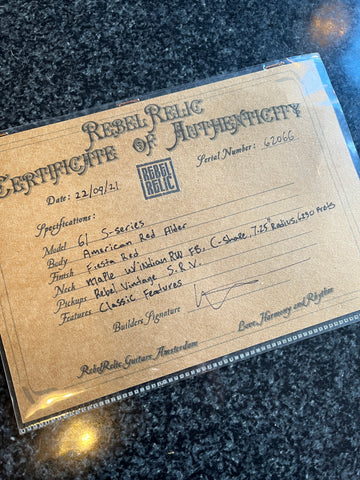 RebelRelic
Certificate of Authenticity
Date: 22/09/21
REBEL
RELIC
Serial Number: 62066
Specifications:
Model 61 S-series
Body American Red Alder
Finish Fiesta Red
Neck Maple w/ Indian RW FB, C-shape, 7.25" Radius, 6230 Frets
Pickups Rebel Vintage S.R.V.
Features Classic Features
Builders Signature
RebelRelic Guitars, Amsterdam
Love, Harmony and Rhythm